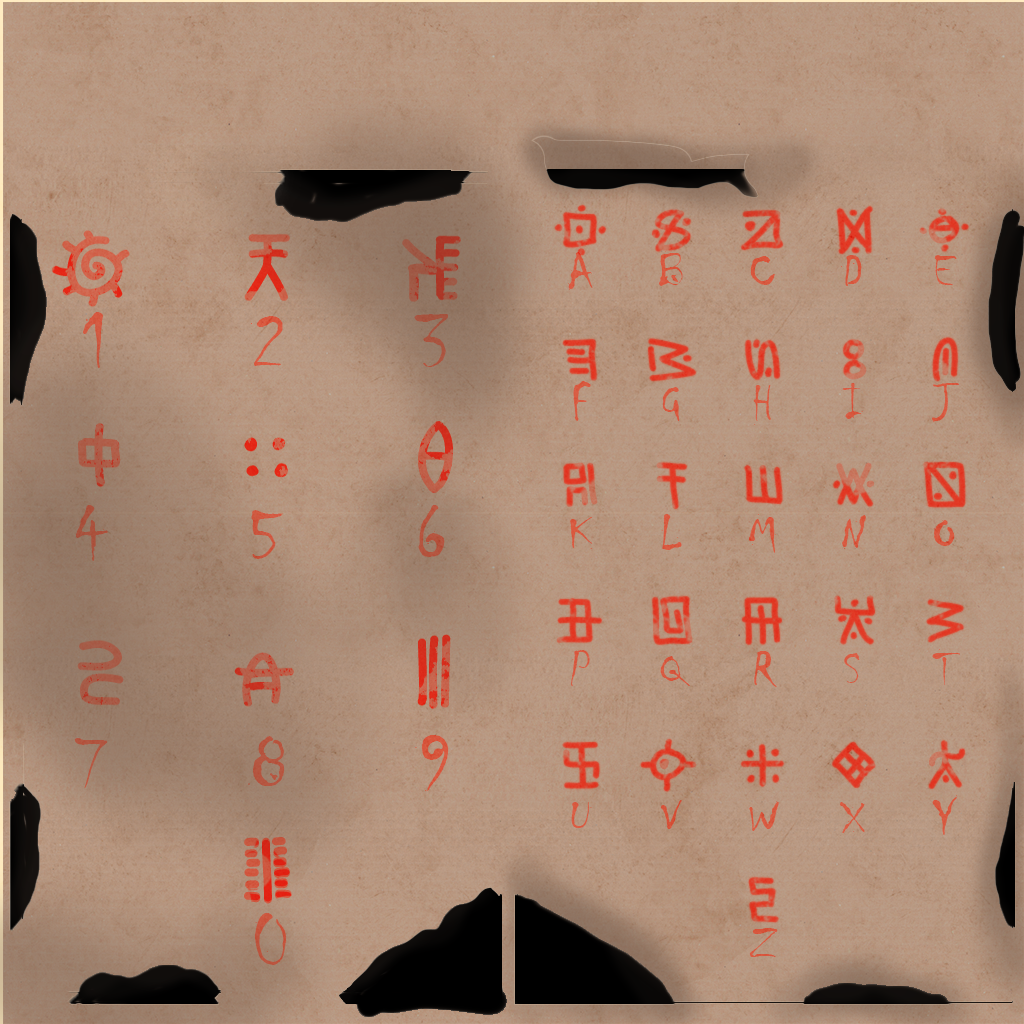 1 2 3
4 5 6
7 8 9
0
A B C D E
F G H I J
K L M N O
P Q R S T
U V W X Y
Z